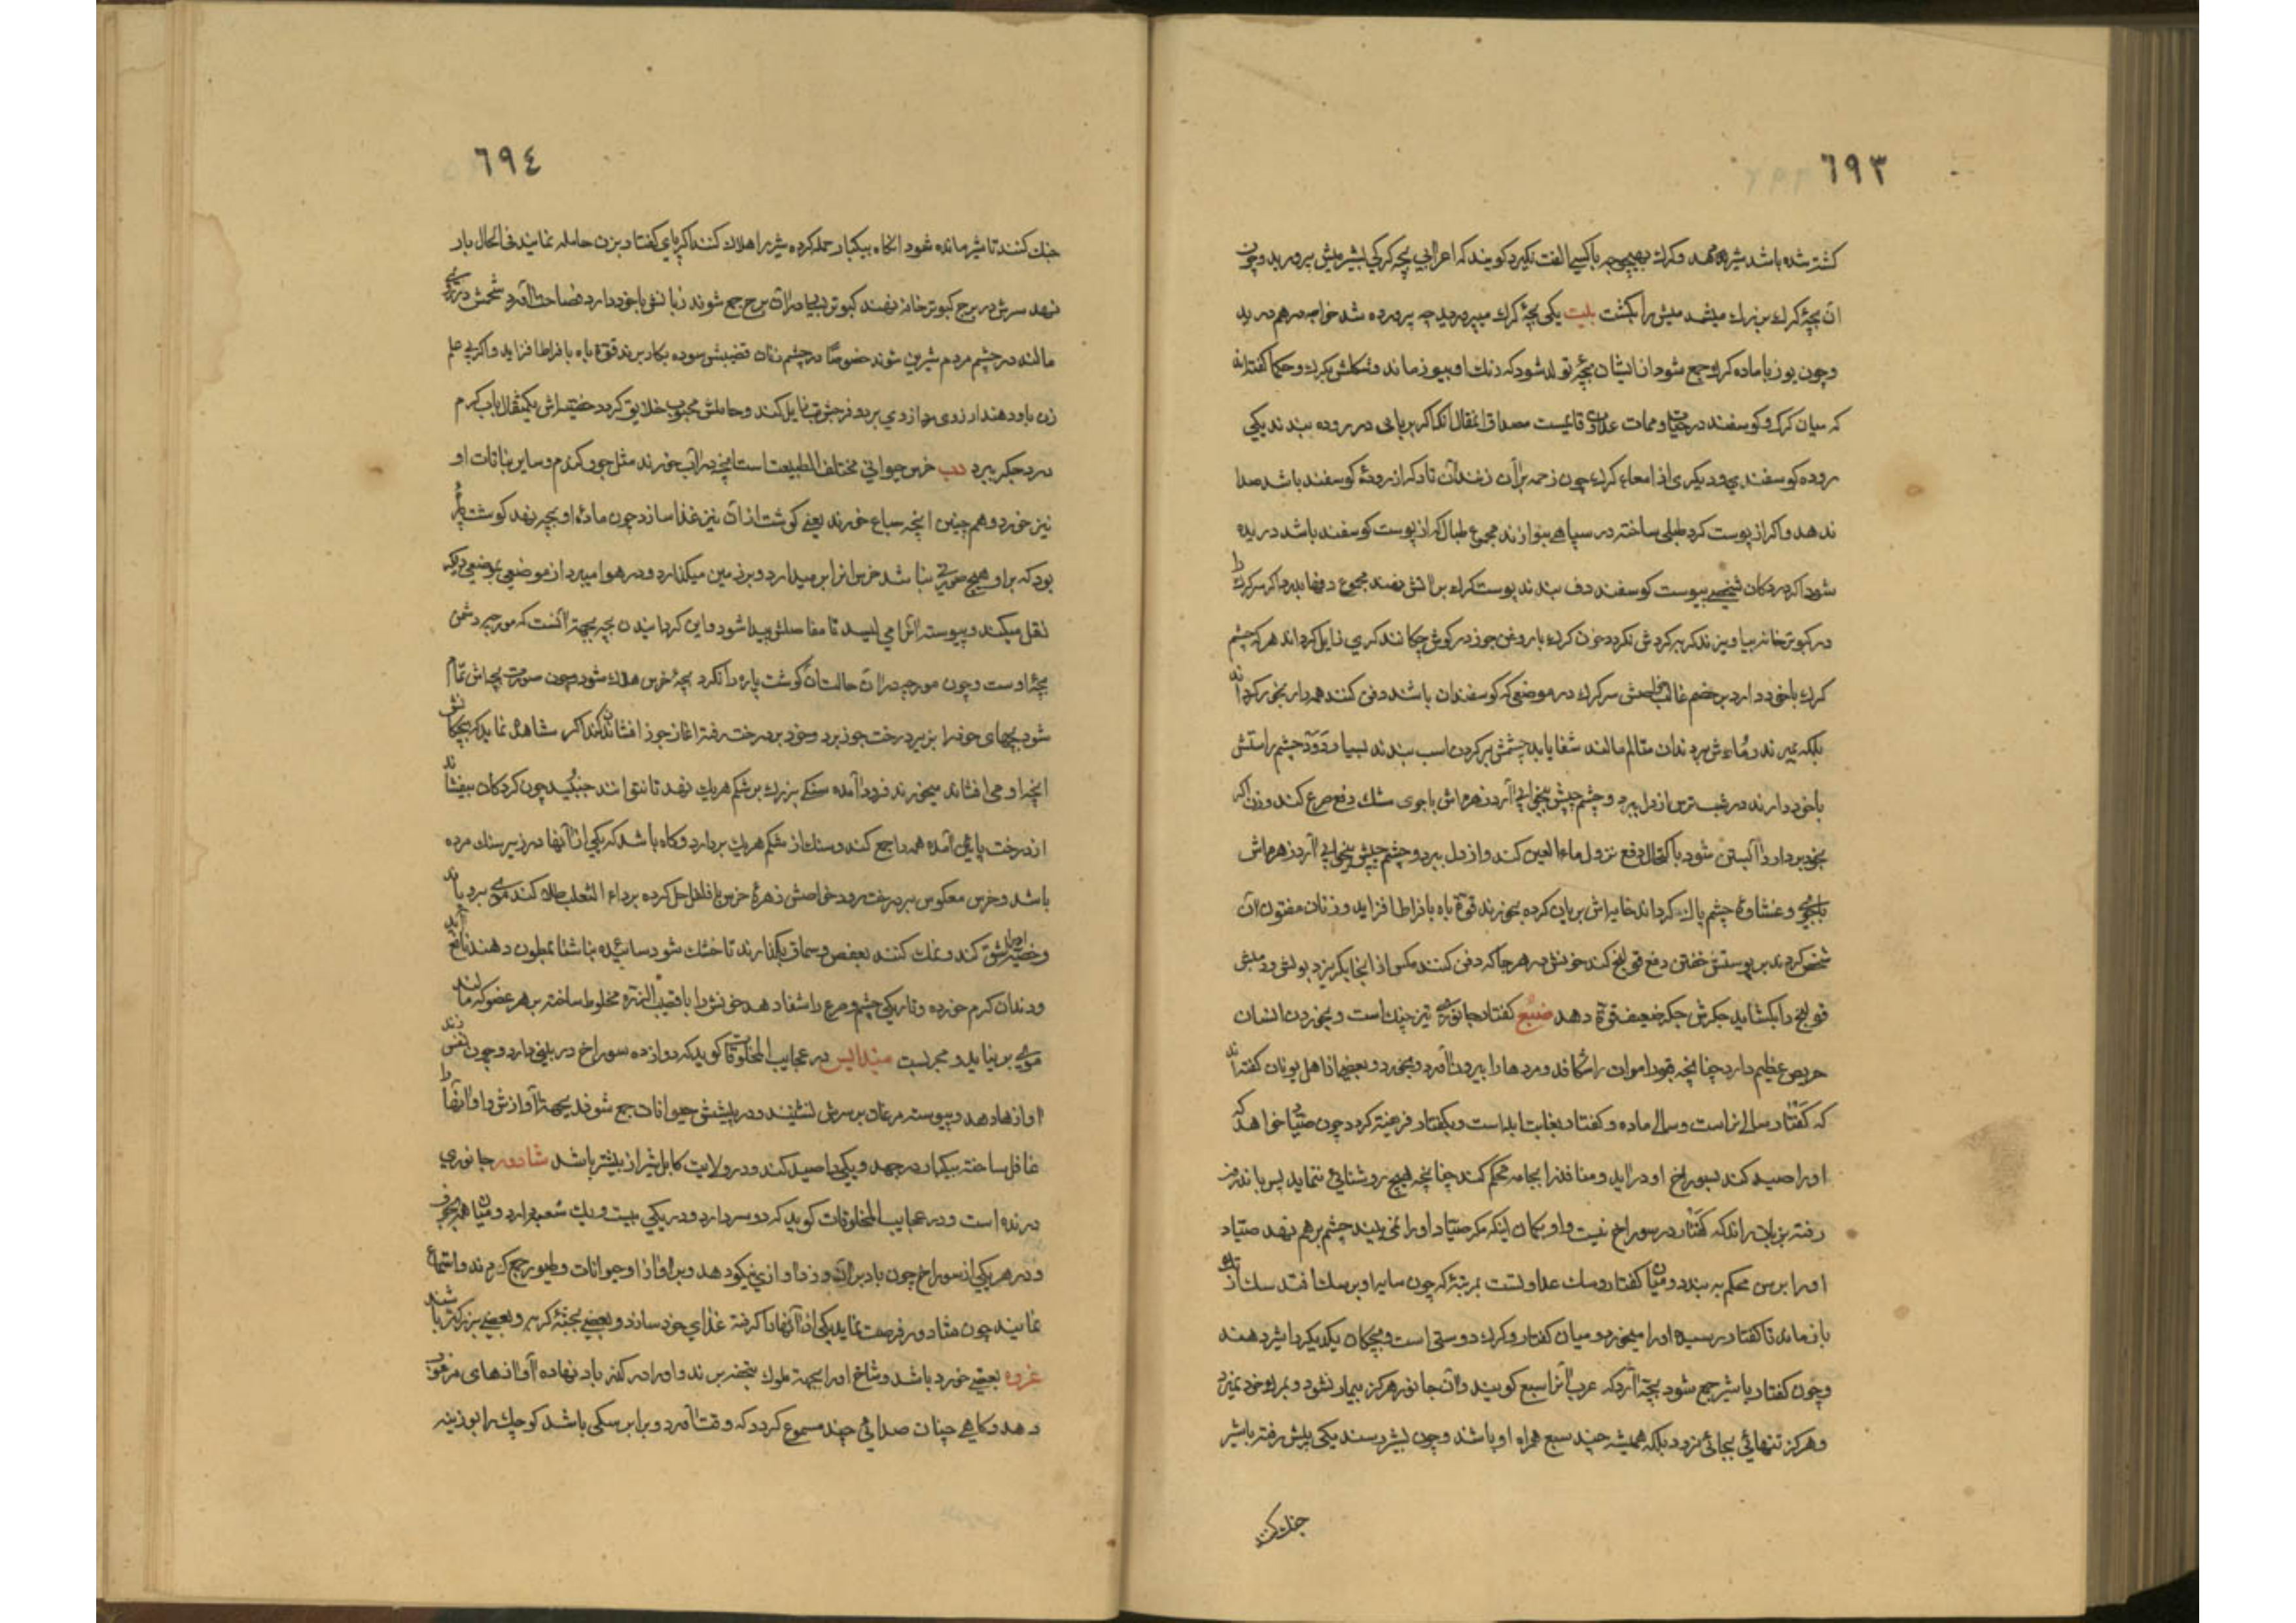 ٦٩٣
کشته شده باشد شیر دهد وکرك بهیچوجه باکسی الفت نکیرد کویند که اعرابی بچه کرکی بشیر میش پرورید وچون
ان بچهٔ کرك بزرك میشد میش را بکشت بیت یکی بچهٔ کرك میپرورید چه پرورده شد خواجه درهم درید
وچون یوز با ماده کرك جمع شود از ایشان بچهٔ تولد شود که
که میان کرك وکوسفند در حیات وممات عداوی قایمست مصداق انمقال انکه اکر بربابی در روده ببندند یکی
روده کوسفندی ودیکری از امعاء کرك چون زخمه بران زنند آن تار که از رودهٔ کوسفند باشد صدا
ندهد واکر از پوست کرك طبلی ساخته در سپاهی بنوازند مجموع طبال که از پوست کوسفند باشد دریده
شود اکر در دکان شخصی بپوست کوسفند دف بندند پوست کرك بر اتش نهند مجموع دفها بدرد اکر سر کرك را
در کبوترخانه بیاویزند کربه کردش نکردد خون کرك با روغن جوز در کوش چکانند کری زایل کرداند هر که چشم
کرك با خود دارد بر خصم غالب سر کرك در موضعی که کوسفندان باشند دفن کنند همه
بلکه بمیرند دندان متالم مالند شفا یابد چشمش بر کردن اسب بندند بسیار دود چشم راستش
با خود دارند در شب ترس از دل ببرد زهره‌اش باجوی مشك دفع صرع کند وزن اکر
بخود بردارد آبستن شود باکتحال دفع نزول ماء العین کند واز دل ببرد
وغشاوهٔ چشم پاك کرداند خایه‌اش بریان کرده بخورند قوهٔ باه بافراط افزاید وزنان مفتون آن
شخص کردند بر پوستش خفتن دفع قولنج کند خونش در هر جا که دفن کنند مکس از انجا بکریزد
قولنج را بکشاید جکرش جکر ضعیف قوة دهد ضبع کفتار جانوری تیز چنك است وبخوردن انسان
حریص عظیم دارد چنانچه قبور اموات را شکافد ومردها را بیرون آورد وبخورد وبعضی از اهل یونان کفته اند
که کفتار سالی نر است وسالی ماده وکفتار بغایت ابله است وبکفتار فریفته کردد چون صیاد خواهد که
اورا صید کند بسوراخ او در اید ومنافذ را بجامه محکم کند چنانچه هیچ روشنائی ننماید پس
رفته بزبان راند که کفتار در سوراخ نیست واو بکمان اینکه مکر صیاد اورا نمی بیند چشم بر هم نهد صیاد
اورا برسن محکم به بندد ومیان کفتار وسك عداوتست بمرتبهٔ که چون سایه او بر سك افتد سك از تك
باز ماند تا کفتار رسیده اورا میخورد ومیان کفتار وکرك دوستی است وبچکان یکدیکر را شیر دهند
وچون کفتار با شیر جمع شود بچه آرد که عرب آنرا سبع کویند وآن جانور هرکز بیمار نشود وبمرك خود نمیرد
وهرکز تنهائی بجائی نرود بلکه همیشه چند سبع همراه او باشند وچون بشیر رسند یکی پیش رفته با شیر
جنك کنند
٦٩٤
جنك کنند تا شیر مانده شود انکاه بیکبار حمله کرده شیر را هلاك کنند اکر پای کفتار بزن حامله نمایند فی الحال بار
نهد سرش در برج کبوترخانه نهند کبوتر بسیار دران برج جمع شوند زبانش با خود دارد فصاحت آورد شحمش در
مالند در چشم مردم شیرین شوند خصوصا در چشم زنان قضیبش سوده بکار برند قوة باه بافراط افزاید واکر بی علم
زن باو دهند ارزوی مرد از وی برد وحاملش محبوب خلایق کردد یکمثقال باب کرم
درد جکر ببرد دب خرس حیوانی مختلف الطبیعت است آنچه دواب خورند مثل جو وکندم وسایر نباتات او
نیز خورد وهمچنین انچه سباع خورند یعنی کوشت از ان نیز غذا سازد چون مادهٔ او بچه نهد کوشت پاره
بود که براو هیچ صورتی نباشد خرس انرا بر میدارد وبر زمین میکذارد ودر هوا میبرد از موضعی بموضعی دیکر
نقل میکند وپیوسته انرا می لیسد تا مفاصلش پیدا شود واین کردانیدن بچه بجهة آنست که مورچه دشمن
بچهٔ اوست وچون مورچه دران حالت آن کوشت پاره را نکرد بچهٔ خرس هلاك شود وچون صورت بچه‌اش تمام
شود بچهای خود را بزیر درخت جوز برد وخود بر درخت رفته اغاز جوز افشاندن کند اکر مشاهده نماید که بچکانش
انچه او می افشاند میخورند فرود آمده سنکی بزرك بر شکم هریك نهد تا نتوانند جنبید چون کردکان بیفشاند
از درخت پایین آمده همه را جمع کند وسنك از شکم هریك بردارد وکاه باشد که یکی از آنها در زیر سنك مرده
باشد وخرس معکوس بر درخت رود خواصش زهرهٔ خرس با فلفل حل کرده بر داء الثعلب طلا کنند موی برویاند
کند ونمك کنند بعفص وسماق بکذارند تا خشك شود
ودندان کرم خورده وتاریکی چشم وصرع را شفا دهد خونش را مخلوط ساخته بر هر عضو که مالند
موی برنیاید ومجربست میندالیس در عجایب المخلوقات کوید که دوازده سوراخ در بینی دارد وچون نفس زند
اوازها دهد وپیوسته مرغان بر سرش نشینند ودر پیشش حیوانات جمع شوند بجهة آوازش واو آنها را
غافل ساخته بیکبار در جهد ویکی را صید کند ودر ولایت کابل شیر از بیشتر باشد شادور جانوری
درنده است ودر عجایب المخلوقات کوید که دو سر دارد ودر یکی بیست ویك شعبه دارد ومیان همه مجوف
ودر هریکی از سوراخ چون باد بران وزد اوازی نیکو دهد وبر آواز او حیوانات وطیور جمع کردند واستماع
نمایند چون شادور فرصت نماید یکی از آنها را کرفته غذای خود سازد وبعضی بجثهٔ کربه وبعضی بزرکتر باشند
بعضی خورد باشد وشاخ اورا بجهة ملوك بتحفه برند واورا در کذر باد نهاده آوازهای مرغوب
دهد وکاهی چنان صدائی چند مسموع کردد که رقت آورد وبرابر سکی باشد کوچك را بوزینه